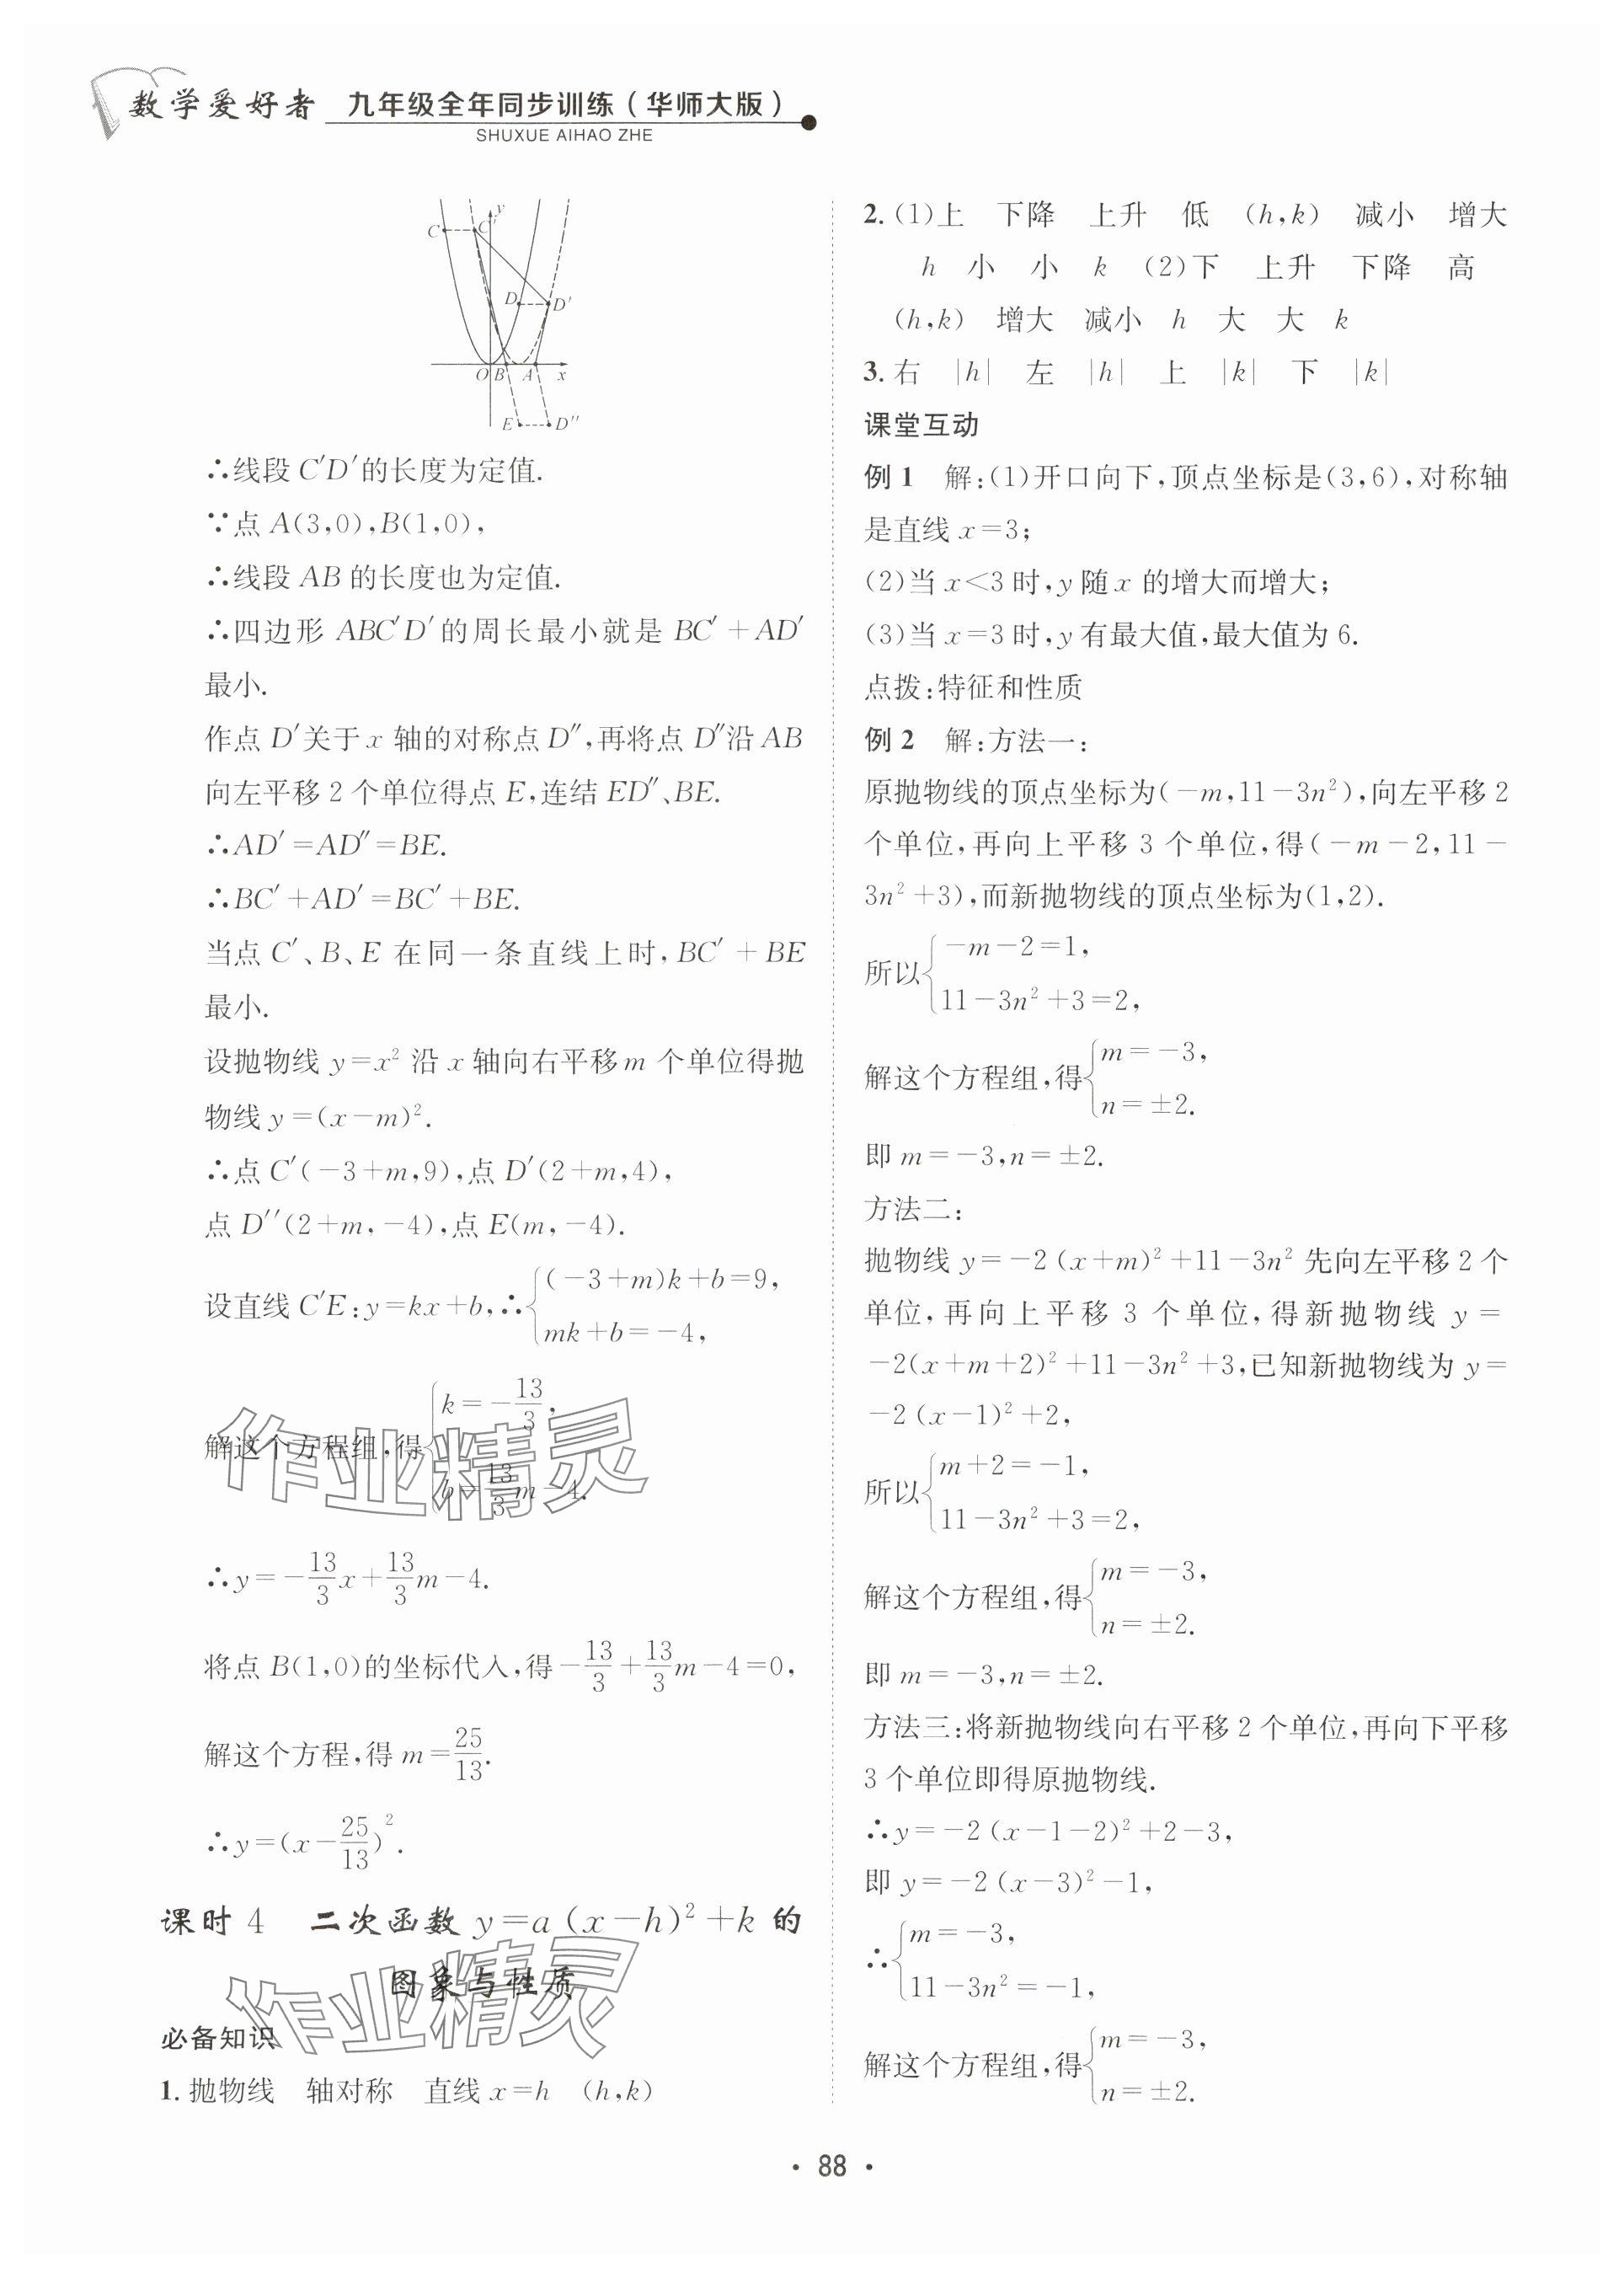 数学爱好者 九年级全年同步训练(华师大版)
SHUXUE AIHAO ZHE
C C′ y
D D′
O B A x
E D″
∴线段 C′D′的长度为定值.
∵点 A(3,0),B(1,0),
∴线段 AB 的长度也为定值.
∴四边形 ABC′D′的周长最小就是 BC′+AD′
最小.
作点 D′关于 x 轴的对称点 D″,再将点 D″沿 AB
向左平移 2 个单位得点 E,连结 ED″、BE.
∴AD′=AD″=BE.
∴BC′+AD′=BC′+BE.
当点 C′、B、E 在同一条直线上时,BC′+BE
最小.
设抛物线 y=x² 沿 x 轴向右平移 m 个单位得抛
物线 y=(x-m)².
∴点 C′(-3+m,9),点 D′(2+m,4),
点 D″(2+m,-4),点 E(m,-4).
设直线 C′E:y=kx+b,∴{(-3+m)k+b=9,
mk+b=-4,
解这个方程组,得{k=-13/3,
b=13/3m-4.
∴y=-13/3x+13/3m-4.
将点 B(1,0)的坐标代入,得-13/3+13/3m-4=0,
解这个方程,得 m=25/13.
∴y=(x-25/13)².
课时 4 二次函数 y=a(x-h)²+k 的
图象与性质
必备知识
1. 抛物线 轴对称 直线 x=h (h,k)
2. (1)上 下降 上升 低 (h,k) 减小 增大
h 小 小 k (2)下 上升 下降 高
(h,k) 增大 减小 h 大 大 k
3. 右 |h| 左 |h| 上 |k| 下 |k|
课堂互动
例 1 解:(1)开口向下,顶点坐标是(3,6),对称轴
是直线 x=3;
(2)当 x<3 时,y 随 x 的增大而增大;
(3)当 x=3 时,y 有最大值,最大值为 6.
点拨:特征和性质
例 2 解:方法一:
原抛物线的顶点坐标为(-m,11-3n²),向左平移 2
个单位,再向上平移 3 个单位,得(-m-2,11-
3n²+3),而新抛物线的顶点坐标为(1,2).
所以{-m-2=1,
11-3n²+3=2,
解这个方程组,得{m=-3,
n=±2.
即 m=-3,n=±2.
方法二:
抛物线 y=-2(x+m)²+11-3n² 先向左平移 2 个
单位,再向上平移 3 个单位,得新抛物线 y=
-2(x+m+2)²+11-3n²+3,已知新抛物线为 y=
-2(x-1)²+2,
所以{m+2=-1,
11-3n²+3=2,
解这个方程组,得{m=-3,
n=±2.
即 m=-3,n=±2.
方法三:将新抛物线向右平移 2 个单位,再向下平移
3 个单位即得原抛物线.
∴y=-2(x-1-2)²+2-3,
即 y=-2(x-3)²-1,
∴{m=-3,
11-3n²=-1,
解这个方程组,得{m=-3,
n=±2.
作业精灵
作业精灵
· 88 ·